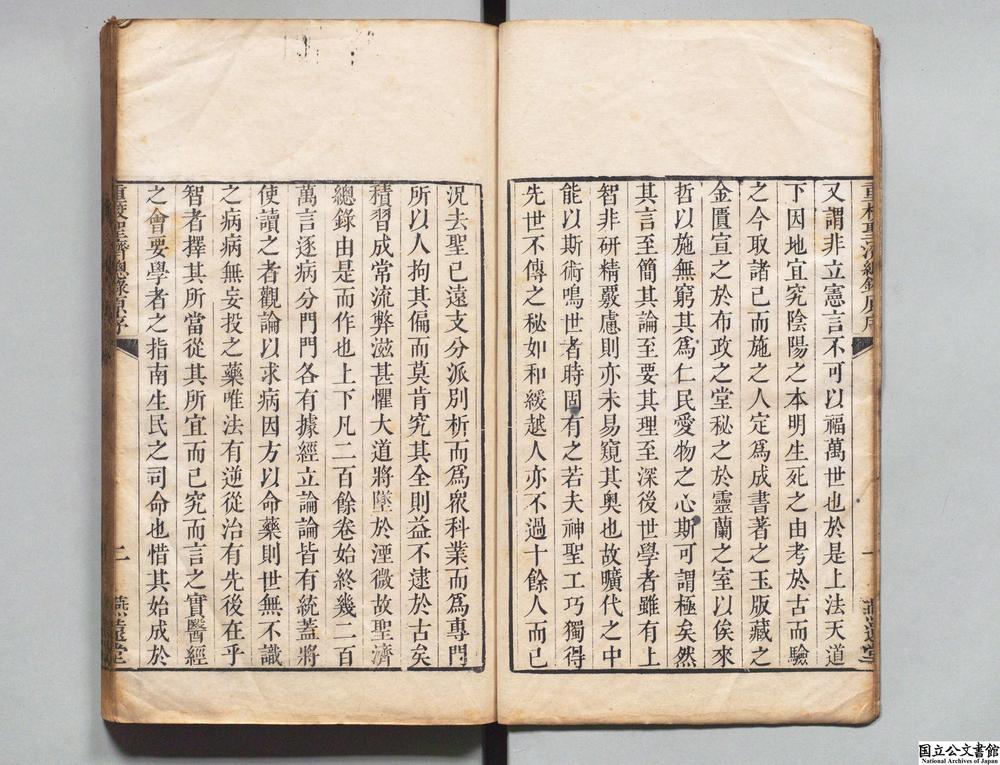 重校聖濟總錄原序
一
燕遠堂
又謂非立憲言不可以福萬世也於是上法天道
下因地宜究陰陽之本明生死之由考於古而驗
之今取諸己而施之人定爲成書著之玉版藏之
金匱宣之於布政之堂秘之於靈蘭之室以俟來
哲以施無窮其爲仁民愛物之心斯可謂極矣然
其言至簡其論至要其理至深後世學者雖有上
智非研精覈慮則亦未易窺其奥也故曠代之中
能以斯術鳴世者時固有之若夫神聖工巧獨得
先世不傳之秘如和緩越人亦不過十餘人而已
況去聖已遠支分派別析而爲衆科業而爲專門
所以人拘其偏而莫肯究其全則益不逮於古矣
積習成常流弊滋甚懼大道將墜於湮微故聖濟
總錄由是而作也上下凡二百餘卷始終幾二百
萬言逐病分門門各有據經立論論皆有統蓋將
使讀之者觀論以求病因方以命藥則世無不識
之病病無妄投之藥唯法有逆從治有先後在乎
智者擇其所當從其所宜而已究而言之實醫經
之會要學者之指南生民之司命也惜其始成於
重校聖濟總錄原序
二
燕遠堂
国立公文書館
National Archives of Japan